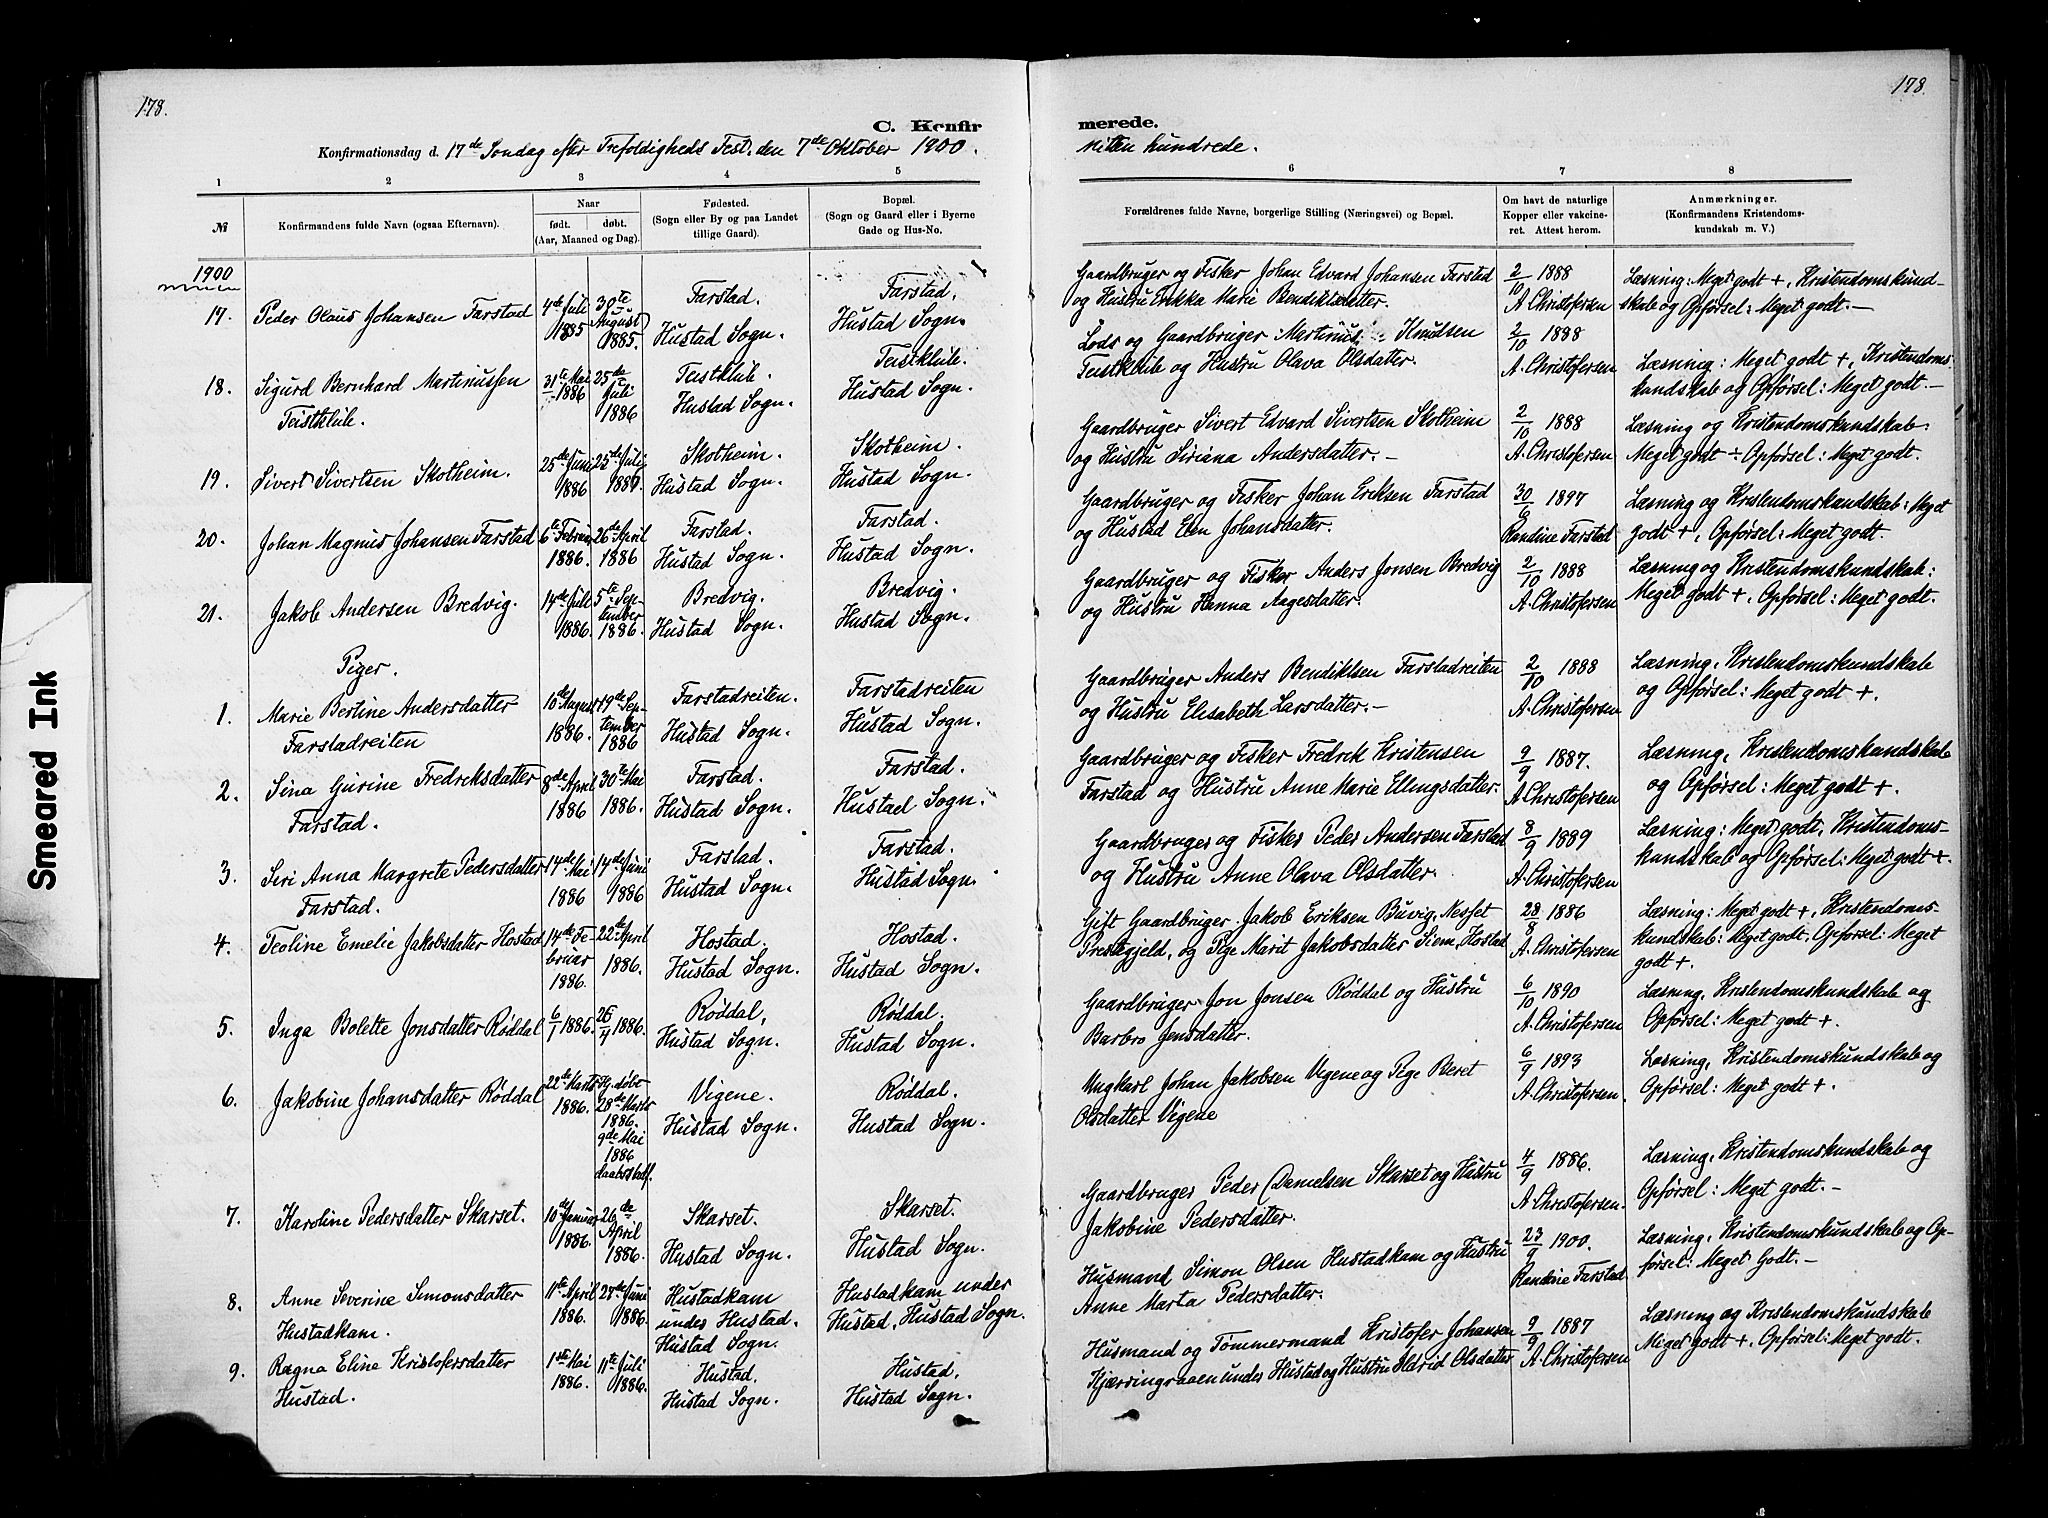 178.
178.
C. Konfirmerede.
Konfirmationsdag d. 17de Søndag efter Trefoldigheds Fest, den 7de Oktober 1900. nitten hundrede.
1 2 3 4 5 6 7 8
№
Konfirmandens fulde Navn (ogsaa Efternavn).
Naar
født. døbt.
(Aar, Maaned og Dag).
Fødested.
(Sogn eller By og paa Landet
tillige Gaard).
Bopæl.
(Sogn og Gaard eller i Byerne
Gade og Hus-No.
Forældrenes fulde Navne, borgerlige Stilling (Næringsvei) og Bopæl.
Om havt de naturlige
Kopper eller vakcine-
ret. Attest herom.
Anmærkninger.
(Konfirmandens Kristendoms-
kundskab m. V.)
1900
17. Peder Olaus Johansen Farstad
4de Juli 1885
30te August 1885.
Farstad. Hustad Sogn.
Farstad, Hustad Sogn.
Gaardbruger og Fisker Johan Edvard Johansen Farstad
og Hustru Erikka Marie Bendiktsdatter.
2/10 1888 A. Christofersen
Læsning: Meget godt +, Kristendomskund-
skab og Opførsel: Meget godt. —
18. Sigurd Bernhard Martinussen
Teistklub.
31te Mai 1886
25de Juli 1886
Teistklub. Hustad Sogn.
Teistklub. Hustad Sogn.
Lods og Gaardbruger Martinus Knudsen
Teistklub og Hustru Olava Olsdatter.
2/10 1888 A. Christofersen
Læsning: Meget godt +, Kristendoms-
kundskab og Opførsel: Meget godt. —
19. Sivert Sivertsen Skotheim.
25de Juni 1886
25de Juli 1886
Skotheim. Hustad Sogn.
Skotheim. Hustad Sogn.
Gaardbruger Sivert Edvard Sivertsen Skotheim
og Hustru Siriana Andersdatter. —
2/10 1888 A. Christofersen
Læsning og Kristendomskundskab:
Meget godt + Opførsel: Meget godt.
20. Johan Magnus Johansen Farstad
6te Februar 1886.
26de April 1886
Farstad. Hustad Sogn.
Farstad. Hustad Sogn.
Gaardbruger og Fisker Johan Eriksen Farstad
og Hustad Elen Johansdatter.
30/6 1897 Randine Farstad
Læsning og Kristendomskundskab: Meget
godt +, Opførsel: Meget godt.
21. Jakob Andersen Bredvig.
14de Juli 1886.
5te September 1886.
Bredvig. Hustad Sogn.
Bredvig. Hustad Sogn.
Gaardbruger og Fisker Anders Jonsen Bredvig
og Hustru Hanna Aagesdatter.
2/10 1888 A. Christofersen
Læsning og Kristendomskundskab:
Meget godt +, Opførsel: Meget godt.
Piger.
1. Marie Bertine Andersdatter
Farstadreiten
10de August 1886.
19de September 1886
Farstadreiten. Hustad Sogn.
Farstadreiten Hustad Sogn.
Gaardbruger Anders Bendiktsen Farstadreiten
og Hustru Elisabeth Larsdatter. —
2/10 1888 A. Christofersen
Læsning, Kristendomskundskab
og Opførsel: Meget godt +.
2. Sina Gurine Fredriksdatter
Farstad.
8de April 1886
30te Mai 1886.
Farstad. Hustad Sogn.
Farstad. Hustad Sogn.
Gaardbruger og Fisker Fredrik Kristensen
Farstad og Hustru Anne Marie Ellingsdatter.
9/9 1887. A. Christofersen
Læsning, Kristendomskundskab
og Opførsel: Meget godt +.
3. Seri Anna Margrete Pedersdatter
Farstad.
14de Mai 1886
14de Juni 1886
Farstad. Hustad Sogn.
Farstad. Hustad Sogn.
Gaardbruger og Fisker Peder Andersen Farstad
og Hustru Anne Olava Olsdatter.
8/9 1889 A. Christofersen
Læsning: Meget godt, Kristendoms-
kundskab og Opførsel: Meget godt +.
4. Teoline Emelie Jakobsdatter Hostad
14de Februar 1886.
22de April 1886.
Hostad. Hustad Sogn.
Hostad. Hustad Sogn.
Gift Gaardbruger Jakob Eriksen Buvig, Nesset
Prestegjeld, og Pige Marit Jakobsdatter Siem, Hostad
28/8 1886 A. Christofersen
Læsning: Meget godt +, Kristendoms-
kundskab: Meget godt, Opførsel: Meget
godt +.
5. Inga Bolette Jonsdatter Røddal
6/1 1886.
26/4 1886.
Røddal, Hustad Sogn.
Røddal. Hustad Sogn.
Gaardbruger Jon Jonsen Røddal og Hustru
Barbro Jensdatter.
6/10 1890 A. Christofersen
Læsning, Kristendomskundskab og
Opførsel: Meget godt +.
6. Jakobine Johansdatter Røddal
22de Marts 1886.
Hj. døbt 28de Marts 1886. 9de Mai 1886 daabsstadf.
Vigene. Hustad Sogn.
Røddal. Hustad Sogn.
Ungkarl Johan Jakobsen Vigene og Pige Beret
Olsdatter Vigene
6/9 1893 A. Christofersen.
Læsning, Kristendomskundskab og
Opførsel: Meget godt +.
7. Karoline Pedersdatter Skarset.
10de Januar 1886.
26de April 1886.
Skarset. Hustad Sogn.
Skarset. Hustad Sogn.
Gaardbruger Peder Danielsen Skarset og Hustru
Jakobine Pedersdatter.
4/9 1886. A. Christofersen.
Læsning, Kristendomskundskab og
Opførsel: Meget godt. —
8. Anne Severine Simonsdatter
Hustadkam.
11te April 1886.
24de Juni 1886.
Hustadkam under Hustad. Hustad Sogn.
Hustadkam under Hustad, Hustad Sogn.
Husmand Simon Olsen Hustadkam og Hustru
Anne Marta Pedersdatter.
23/9 1900. Randine Farstad
Læsning, Kristendomskundskab og Op-
førsel: Meget Godt. —
9. Ragna Eline Kristofersdatter
Hustad.
1ste Mai 1886.
11te Juli 1886.
Hustad, Hustad Sogn.
Hustad, Hustad Sogn.
Husmand og Tømmermand Kristofer Johansen
Kjærringraaen under Hustad og Hustru Eldrid Olsdatter
9/9 1887 A. Christofersen
Læsning og Kristendomskundskab
Meget godt +, Opførsel: Meget godt.
Smeared Ink